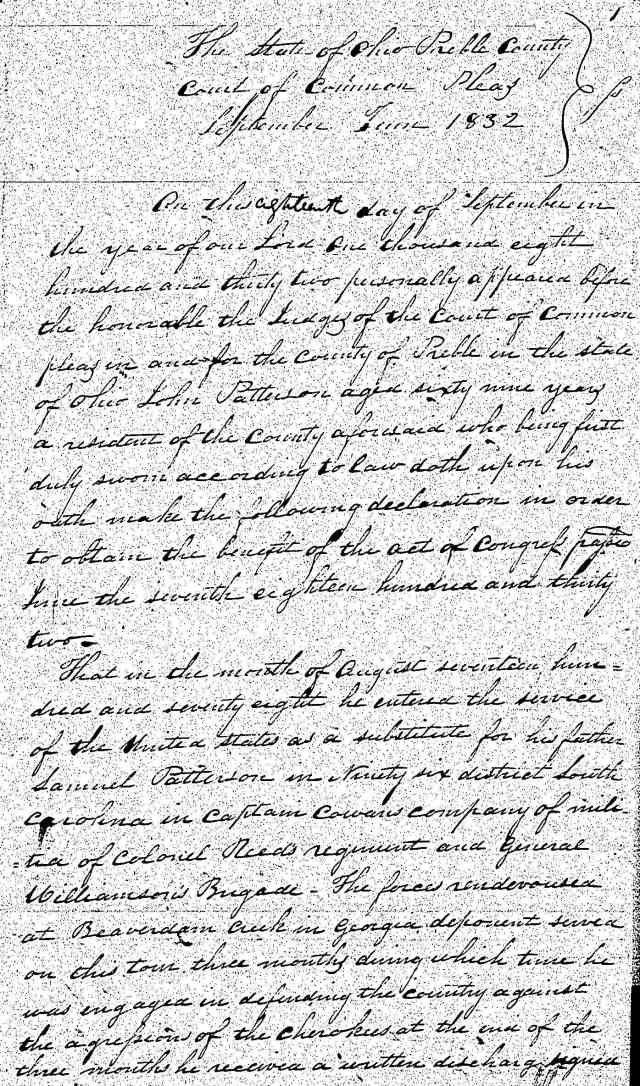 1
The State of Ohio Preble County
Court of Common Pleas
September Term 1832
ss
On this eighteenth day of September in
the year of our Lord one thousand eight
hundred and thirty two personally appeared before
the honorable the Judges of the Court of Common
pleas in and for the County of Preble in the state
of Ohio John Patterson aged sixty nine years
a resident of the County aforesaid who being first
duly sworn according to law doth upon his
oath make the following declaration in order
to obtain the benefit of the act of Congress passed
June the seventh eighteen hundred and thirty
two.
That in the month of August seventeen hun=
dred and seventy eight he entered the service
of the United States as a substitute for his father
Samuel Patterson in Ninety six district South
Carolina in Captain Cowans company of mili-
=tia of Colonel Reeds regiment and General
Williamson's Brigade - The forces rendevoused
at Beaverdam Creek in Georgia deponent served
on this tour three months during which time he
was engaged in defending the country against
the agressions of the Cherokees at the end of the
three months he received a written discharg signed